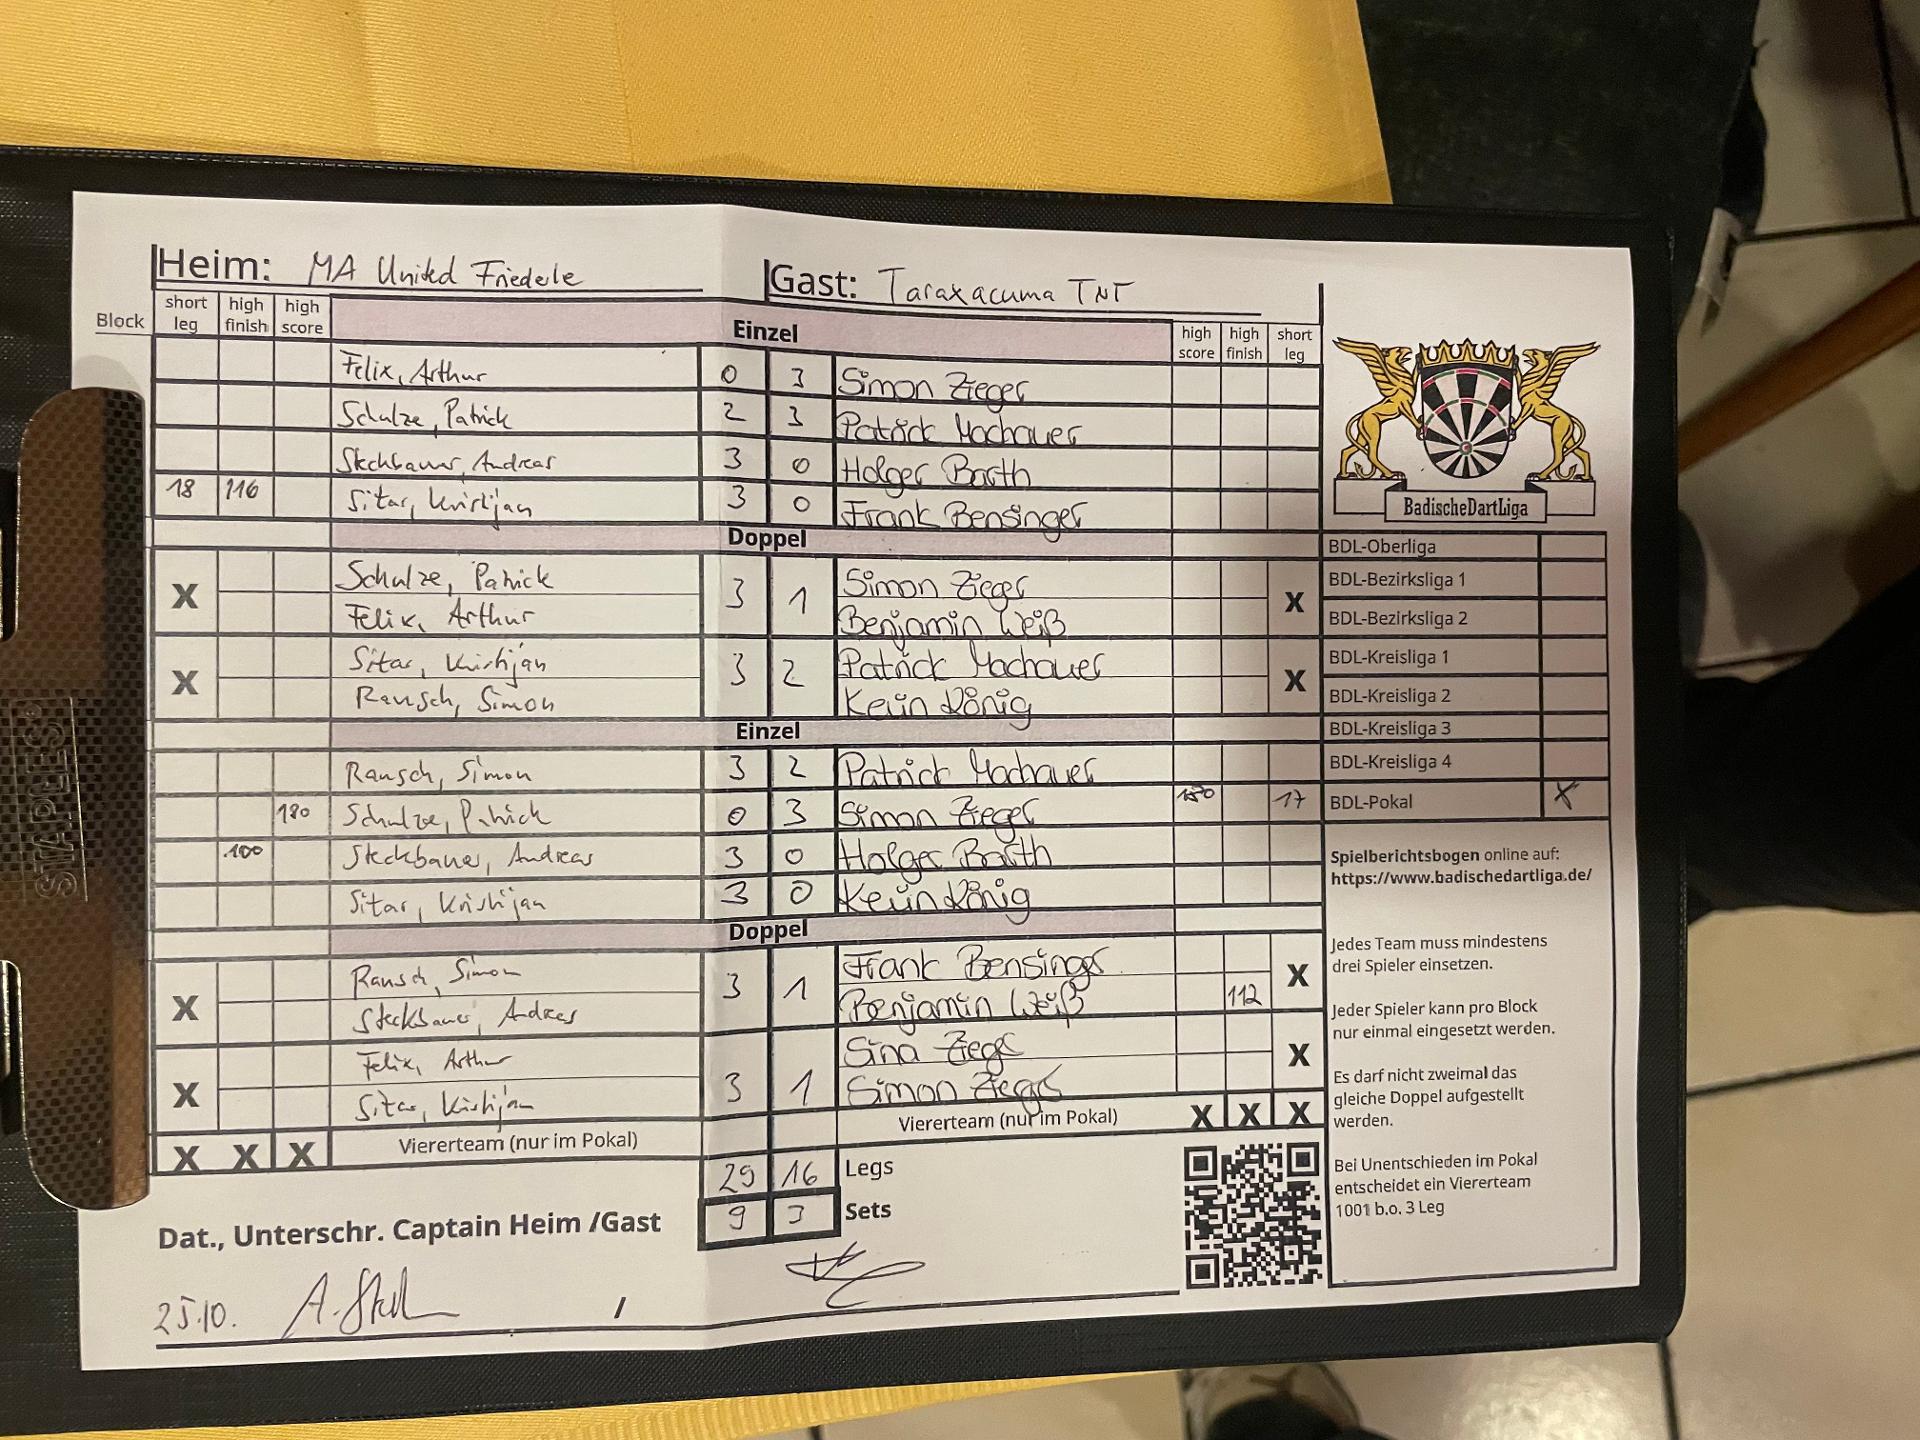 Heim: MA United Friederle Gast: Taraxacuma TNT
Block short leg high finish high score Einzel high score high finish short leg
Felix, Arthur 0 3 Simon Zieger
Schulze, Patrick 2 3 Patrick Machauer
Steckbauer, Andreas 3 0 Holger Barth
18 116 Sitar, Kristijan 3 0 Frank Bensinger
Doppel
X Schulze, Patrick 3 1 Simon Zieger X
Felix, Arthur Benjamin Weiß
X Sitar, Kristijan 3 2 Patrick Machauer X
Rausch, Simon Kevin König
Einzel
Rausch, Simon 3 2 Patrick Machauer
180 Schulze, Patrick 0 3 Simon Zieger 180 17
100 Steckbauer, Andreas 3 0 Holger Barth
Sitar, Kristijan 3 0 Kevin König
Doppel
X Rausch, Simon 3 1 Frank Bensinger X
Steckbauer, Andreas Benjamin Weiß 112
X Felix, Arthur 3 1 Sina Zieger X
Sitar, Kristijan Simon Zieger
X X X Viererteam (nur im Pokal) Viererteam (nur im Pokal) X X X
29 16 Legs
9 3 Sets
Dat., Unterschr. Captain Heim /Gast
25.10. /
BadischeDartLiga
BDL-Oberliga
BDL-Bezirksliga 1
BDL-Bezirksliga 2
BDL-Kreisliga 1
BDL-Kreisliga 2
BDL-Kreisliga 3
BDL-Kreisliga 4
BDL-Pokal X
Spielberichtsbogen online auf:
https://www.badischedartliga.de/
Jedes Team muss mindestens
drei Spieler einsetzen.
Jeder Spieler kann pro Block
nur einmal eingesetzt werden.
Es darf nicht zweimal das
gleiche Doppel aufgestellt
werden.
Bei Unentschieden im Pokal
entscheidet ein Viererteam
1001 b.o. 3 Leg
STAPLES